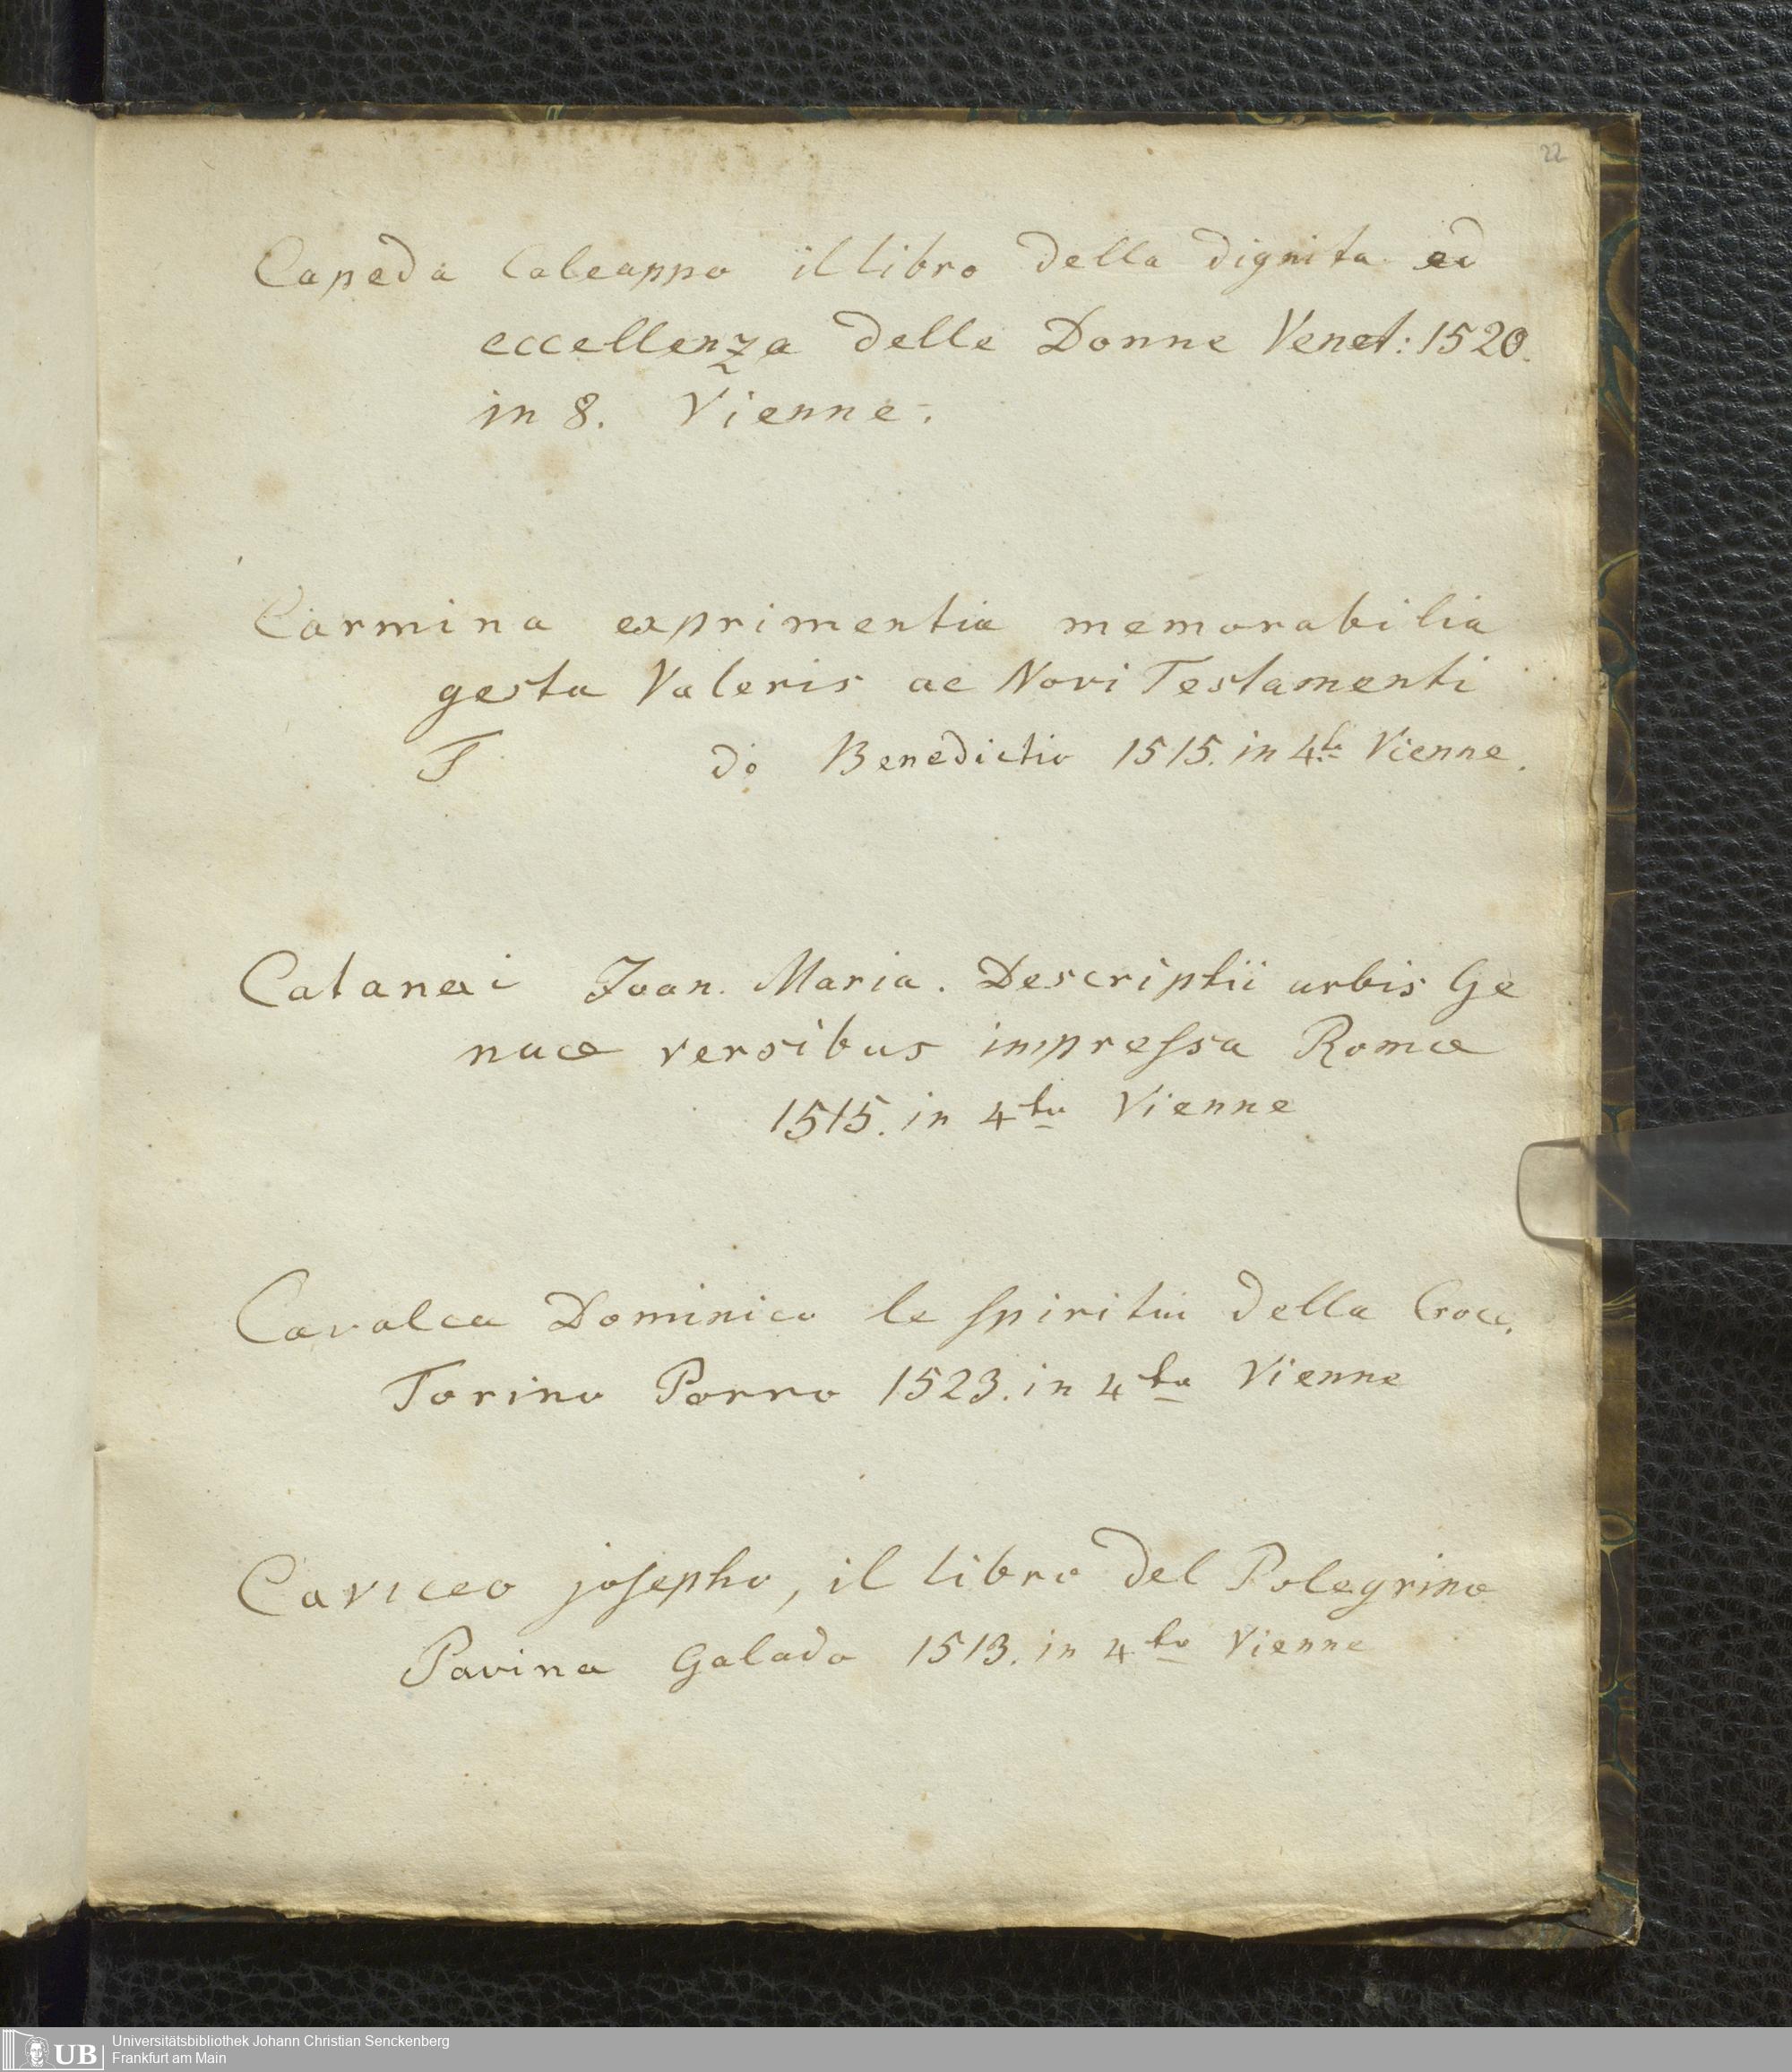 22
Capeda Caleappo il libro della dignita ed
eccellenza delle Donne Venet: 1520.
in 8. Vienne.
Carmina exprimentia memorabilia
gesta Valeris ac Novi Testamenti
T do Benedictio 1515. in 4to Vienne.
Catanaei Joan. Maria. Descriptii urbis Ge
nuae versibus impressa Romae
1515. in 4to Vienne
Cavalca Dominico le spiritui della Croce.
Torino Porro 1523. in 4to Vienne
Caviceo josepho, il libro del Polegrino
Pavina Galado 1513. in 4to Vienne
UB
Universitätsbibliothek Johann Christian Senckenberg
Frankfurt am Main